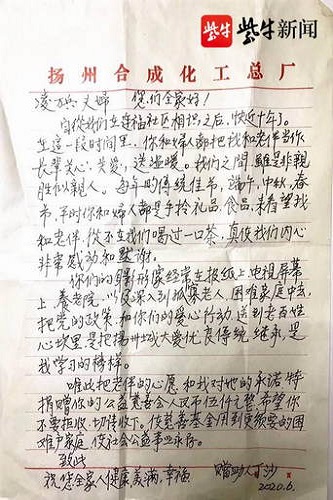 紫牛 紫牛新闻
扬州合成化工总厂
凌万兵夫妇 您们全家好！
自从我们在连福社区相识之后，快近十年。
在这一段时间里，你和妇人都把我和老伴当你
长辈关心、关爱、送温暖。我们之间，虽是非亲
胜似亲人。每年的传统佳节，端午，中秋，春
节，平时你和妇人都是手拎礼品，食品，来看望我
和老伴，从不在我们喝过一口茶，真使我们内心
非常感动和默谢。
你们的身影形象经常在报纸上电视屏幕
上，养老院，深入到孤寡老人，困难家庭中去，
把党的政策和你们的爱心行动送到老百姓
心坎里，是把扬州城大爱优良传统继承，是
我学习的榜样。
唯此把老伴的心愿和我对她的承诺，特
捐赠你的公益慈善会人民币伍仟元整，希望你
不要拒收，切请收下。使慈善基金用到更须要的困
难户家庭，使社会公益事业永存。
致此
祝您全家人健康美满，幸福
赠款人丁沙
2020.6.